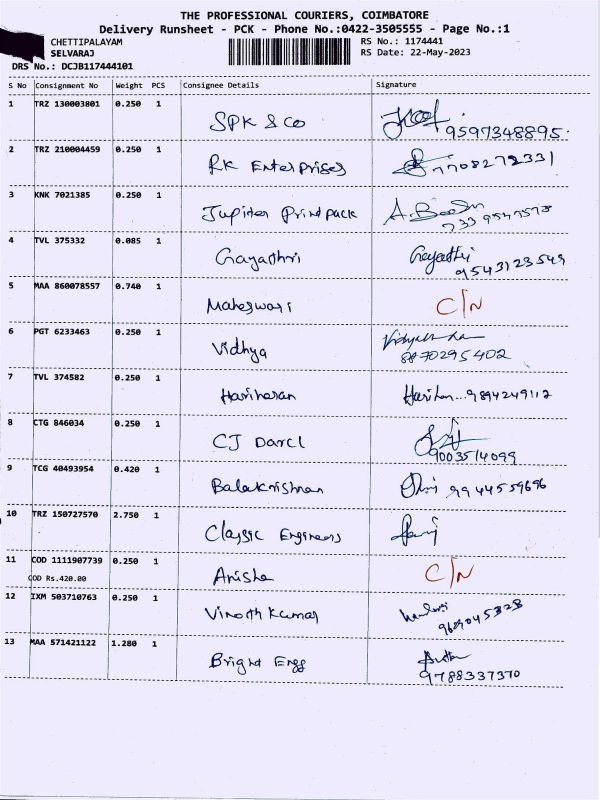 THE PROFESSIONAL COURIERS, COIMBATORE
Delivery Runsheet - PCK - Phone No.:0422-3505555 - Page No.:1
CHETTIPALAYAM
SELVARAJ
RS No.: 1174441
RS Date: 22-May-2023
DRS No.: DCJB117444101
S No Consignment No Weight PCS Consignee Details Signature
1 TRZ 130003801 0.250 1 SPK & Co
9597348895.
2 TRZ 210004459 0.250 1 RK Enterprises 7708272331
3 KNK 7021385 0.250 1 Jupiter Printpack A.
4 TVL 375332 0.085 1 Gayathri Gayathri
9543123549
5 MAA 860078557 0.740 1 Maheswari C/N
6 PGT 6233463 0.250 1 Vidhya
8870295402
7 TVL 374582 0.250 1 Hariharan Hariharan...9894249112
8 CTG 846034 0.250 1 CJ Darcl
9003514099
9 TCG 40493954 0.420 1 Balakrishnan 9944559696
10 TRZ 150727570 2.750 1 Classic Engineers
11 COD 1111907739 0.250 1 Anisha C/N
COD Rs.420.00
12 IXM 503710763 0.250 1 Vinoth Kumar
9689045328
13 MAA 571421122 1.280 1 Bright Engg
9788337370